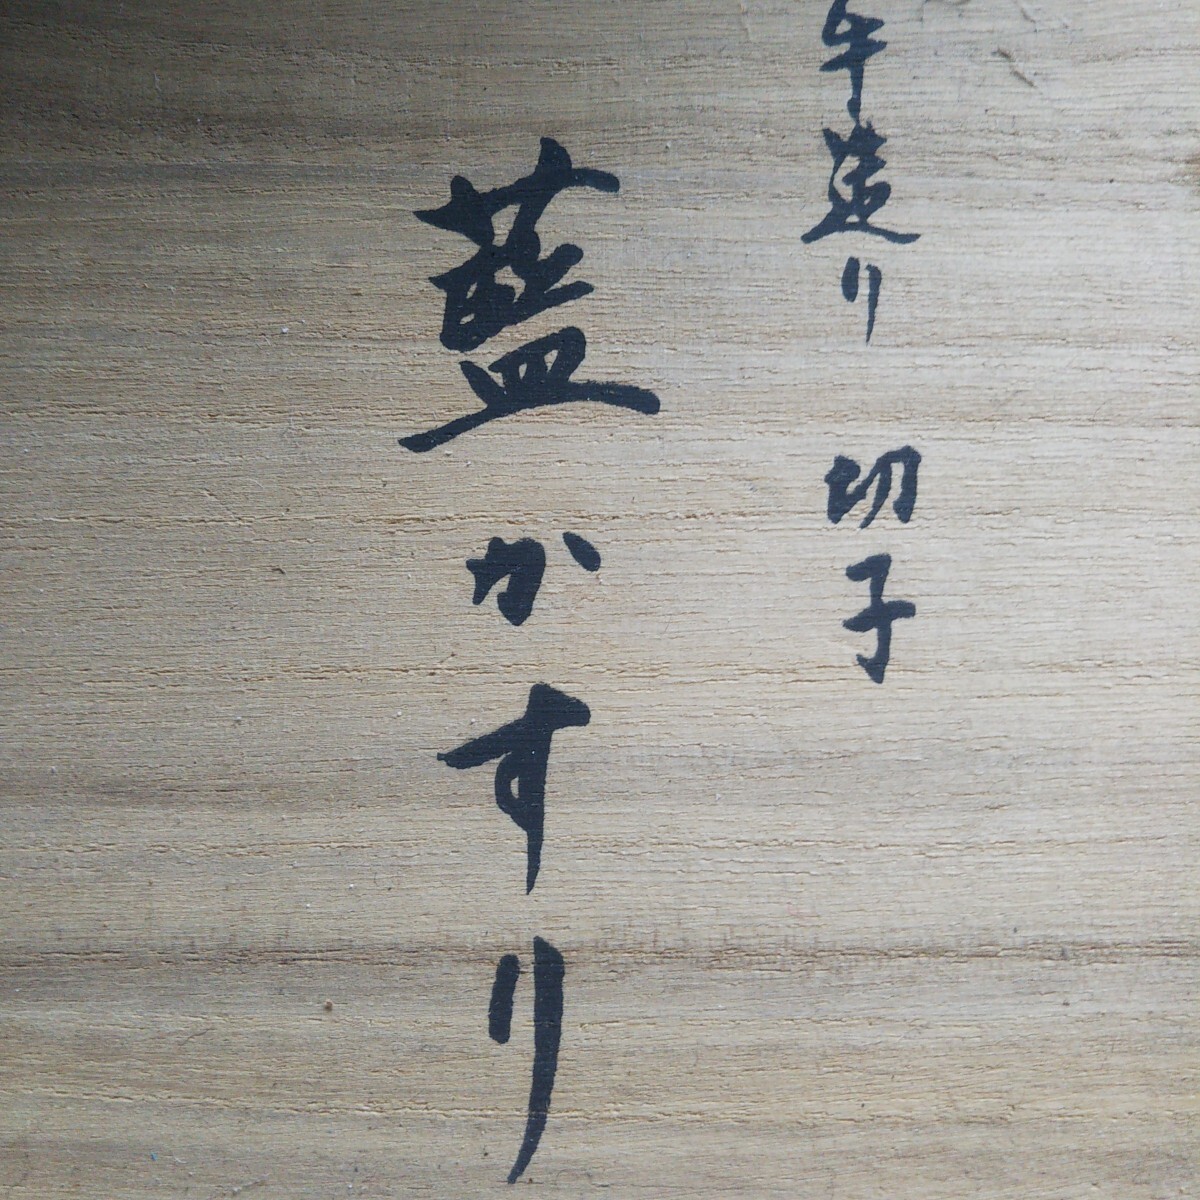 手造り 切子
藍かすり